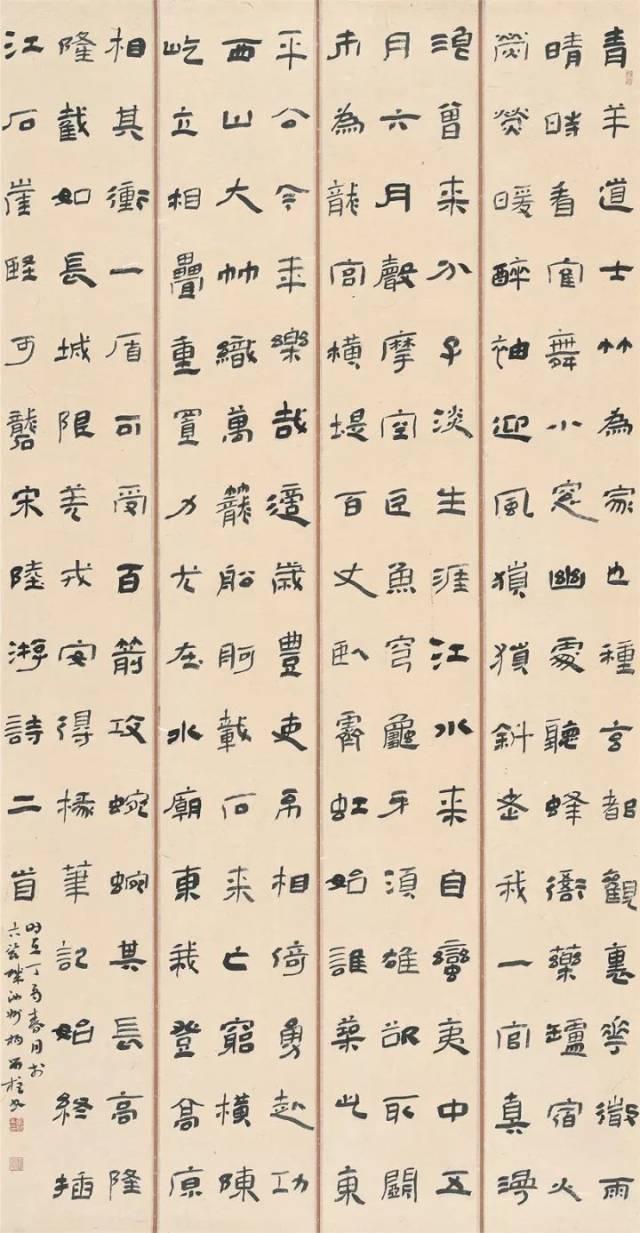 青羊道士竹為家也種玄都觀裏花微雨
晴時看寉舞小窓幽處聽蜂衙藥罏宿火
熒熒暖醉袖迎風獵獵斜老我一官真漫
浪曾來分子淡生涯江水來自蠻夷中五
月六月聲摩空巨魚穹龜牙須雄欲取闤
市為龍宮橫堤百丈臥霽虹始誰築此東
平公今年樂哉適歲豐吏不相倚勇赴功
西山大竹織萬籠船舸載石來亡窮橫陳
屹立相疊重置力尤在水廟東我登高原
相其衝一盾可受百箭攻蜿蜿其長高隆
隆截如長城限羌戎安得椽筆記始終插
江石崖堅可礱宋陸游詩二首
丁酉春月於